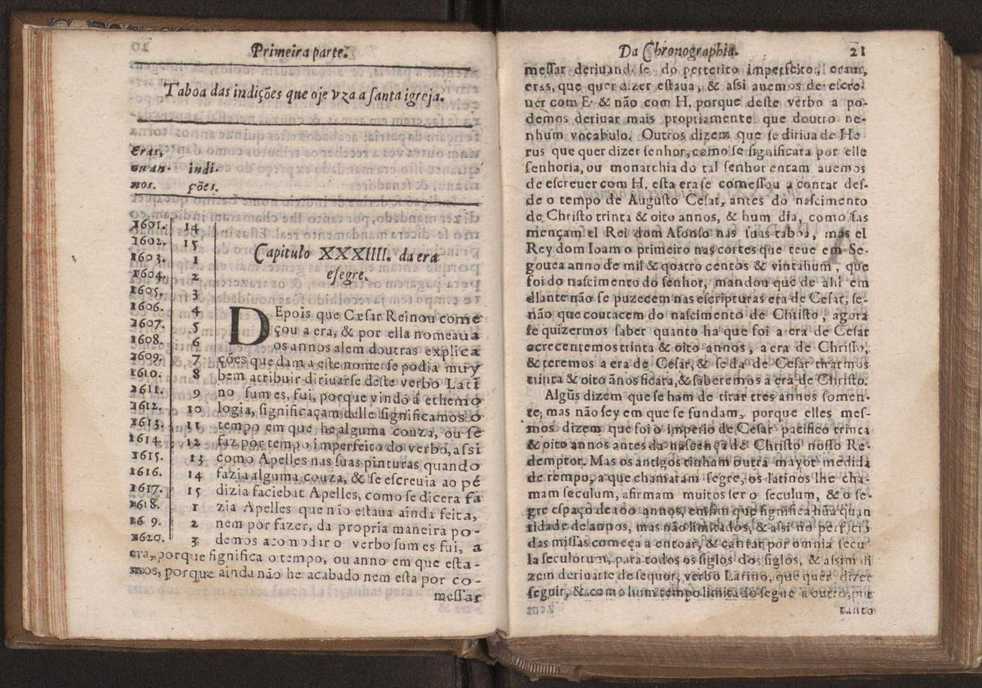 Primeira parte.
Taboa das indições que oje vza a santa igreja.
Eras,
ou an- indi-
nos. ções.
1601. 14
1602. 15
1603. 1
1604. 2
1605. 3
1606. 4
1607. 5
1608. 6
1609. 7
1610. 8
1611. 9
1612. 10
1613. 11
1614. 12
1615. 13
1616. 14
1617. 15
1618. 1
16 9. 2
1620. 3
Capitulo XXXIIII. da era
esegre.
DEpois que Cæsar Reinou come
çou a era, & por ella nomeaua
os annos alem doutras explica
ções que dam a este nome se podia muy
bem attibuir diriuarse deste verbo Lati
no sum es, fui, porque vindo á ethemo
logia, significaçam delle significamos o
tempo em que he alguma couza, ou se
faz por tempo imperfeito do verbo, assi
como Apelles nas suas pinturas quando
fazia alguma couza, & se escreuia ao pé
dizia faciebat Apelles, como se dicera fa
zia Apelles que não estaua ainda feita,
nem por fazer, da propria maneira po-
demos acomodaro verbo sum es fui, a
era, porque significa o tempo, ou anno em que esta-
mos, porque ainda não he acabado nem esta por co-
messar
Da Chronographia. 21
messar deriuand se do preterito imperfeito, eram,
eras, que quer dizer estaua, & assi auemos de escre-
uer com E & não com H, porque deste verbo a po-
demos deriuar mais propriamente que doutro ne-
nhum vocabulo. Outros dizem que se diriua de He
rus que quer dizer senhor, como se significara por elle
senhoria, ou monarchia do tal senhor entam auemos
de escreuer com H, esta era se comessou a contar des-
de o tempo de Augusto Cesar, antes do nascimento
de Christo trinta & oito annos, & hum dia, como fas
mençam el Rei dom Afonso nas suas taboa, mas el
Rey dom Ioam o primeiro nas cortes que teue em Se-
gouea anno de mil & quatro centos & vintahum, que
foi do nascimento do senhor, mandou que de ahi em
diante não se puzecem nas escripturas era de Cesar, se-
não que contacem do nascimento de Christo, agora
se quizermos saber quanto ha que foi a era de Cesar
acrecentemos trinta & oito annos, a era de Christo,
& teremos a era de Cesar, & se da de Cesar tirarmos
trinta & oito ãnos ficara, & saberemos a era de Christo.
Algũs dizem que se ham de tirar tres annos somen-
te, mas não sey em que se fundam, porque elles mes-
mos dizem que foi o imperio de Cesar pacifico trinta
& oito annos antes da nascença de Christo nosso Re-
demptor. Mas os antigos tinham outra mayor medida
de tempo, a que chamaram segre, os latinos lhe cha-
mam seculum, afirmam muitos ser o seculum, & o se-
gre espaço de 100 annos, emfim que significa hũa quan
tidade de annos, mas não limitados, & assi no
das missas começa a entoar, & cantar por omnia secu
la seculorum, para todos os siglos dos siglos, & assim di
zem deriuarse de sequor, verbo Latino, que quer dizer
seguir, & como hum tempo limitado segue a outro, por
tanto